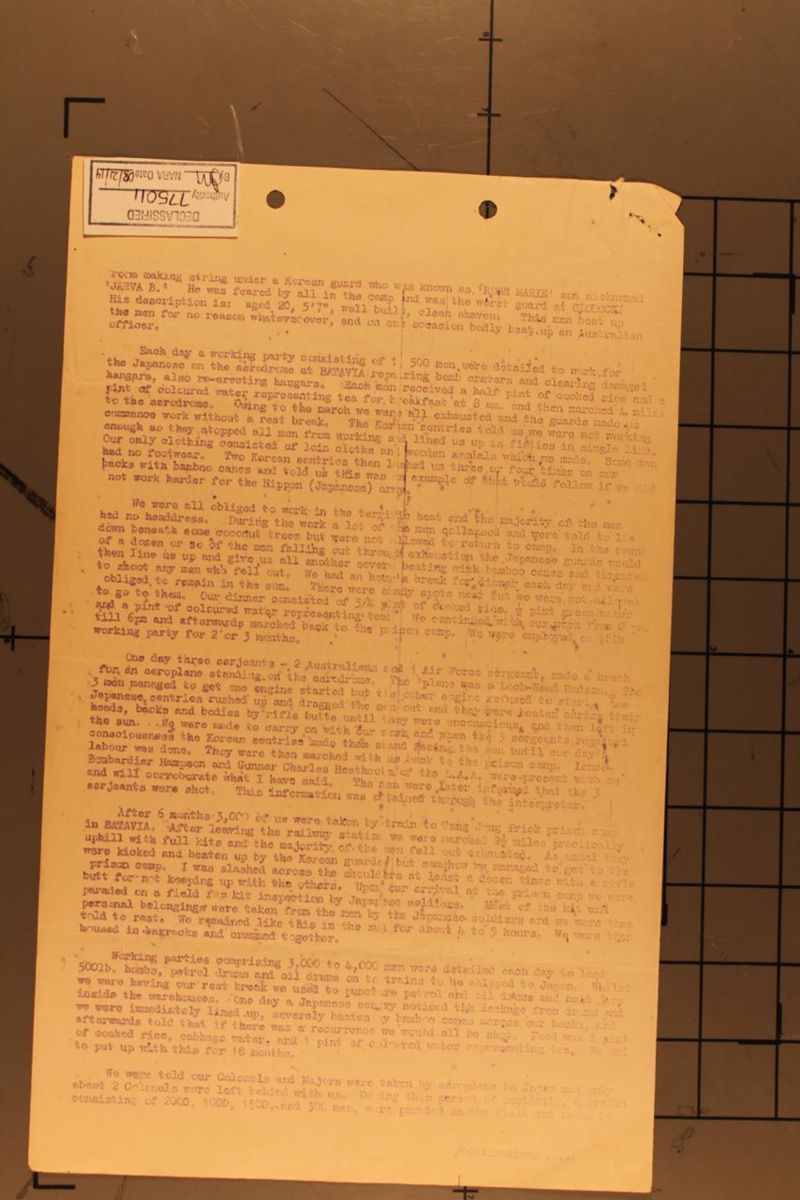 DECLASSIFIED
Authority 775011
By NARA Date
room making string under a Korean guard who was known as "ROSE MARIE" and nicknamed
"JARVA B." He was feared by all in the camp and was the worst guard at
His description is: aged 20, 5'7", well built, clean shaven. This man beat up
the men for no reason whatever, and on one occasion badly beat up an Australian
officer.
Each day a working party consisting of 1,500 men were detailed to work for
the Japanese on the aerodrome at BATAVIA repairing bomb craters and clearing damaged
hangars, also re-erecting hangars. Each man received a half pint of cooked rice and a
pint of coloured water representing tea for breakfast at 8 am. and then marched 4 miles
to the aerodrome. Owing to the march we were all exhausted and the guards made us
commence work without a rest break. The Korean sentries told us we were not working
enough so they stopped all men from working and lined us up in fifties in single line.
Our only clothing consisted of loin cloths and wooden sandals which we made. Some men
had no footwear. Two Korean sentries then lashed us three or four times on our
backs with bamboo canes and told us this was an example of what would follow if we did
not work harder for the Nippon (Japanese) army.
We were all obliged to work in the terrific heat and the majority of the men
had no headdress. During the work a lot of the men collapsed and were told to lie
down beneath some coconut trees but were not allowed to return to camp. In the event
of a dozen or so of the men falling out through exhaustion the Japanese guards would
then line us up and give us all another severe beating with bamboo canes and threaten
to shoot any men who fell out. We had an hour's break for dinner each day and were
obliged to remain in the sun. There were shady spots near but we were not allowed
to go to them. Our dinner consisted of 3/4 pint of cooked rice, pint green water
and a pint of coloured water representing tea. We continued with our work from
till 6pm and afterwards marched back to the prison camp. We were employed on this
working party for 2 or 3 months.
One day three serjeants - 2 Australians and 1 Air Force sergeant, made a break
for an aeroplane standing on the aerodrome. The plane was a Lock-Heed Hudson. The
3 men managed to get one engine started but the other engine refused to start. The
Japanese sentries rushed up and dragged the men out and they were beaten across their
heads, backs and bodies by rifle butts until they were unconscious, and then left in
the sun. We were made to carry on with our work and when the 3 sergeants regained
consciousness the Korean sentries made them stand facing the sun until our day's
labour was done. They were then marched with us back to the prison camp. Lance
Bombardier Hampson and Gunner Charles of the L.A.A. were present with me
and will corroborate what I have said. The men were later informed that the 3
serjeants were shot. This information was obtained through the interpreter.
After 6 months 3,000 of us were taken by train to Tang Jong Prick prison camp
in BATAVIA. After leaving the railway station we were marched 2½ miles practically
uphill with full kits and the majority of the men fell out exhausted. As usual they
were kicked and beaten up by the Korean guards but somehow we managed to get to the
prison camp. I was slashed across the shoulders at least a dozen times with a rifle
butt for not keeping up with the others. Upon our arrival at the prison camp we were
paraded on a field for kit inspection by Japanese soldiers. Most of the kit and
personal belongings were taken from the men by the Japanese soldiers and we were then
told to rest. We remained like this in the sun for about 4 to 5 hours. We were then
housed in barracks and crammed together.
Working parties comprising 3,000 to 4,000 men were detailed each day to load
500lb. bombs, petrol drums and oil drums on to trains to be shipped to Japan. Whilst
we were having our rest break we used to puncture petrol and oil drums and
inside the warehouses. One day a Japanese sentry noticed the leakage from drums and
we were immediately lined up, severely beaten by bamboo canes across our backs, and
afterwards told that if there was a recurrence we would all be shot. Food was 1 pint
of cooked rice, cabbage water, and 1 pint of coloured water representing tea. We had
to put up with this for 18 months.
We were told our Colonels and Majors were taken by aeroplane to Japan and only
about 2 Colonels were left behind with us. During this period of captivity,
consisting of 2000, 1000, 1500, and 300 men, were paraded on the field and